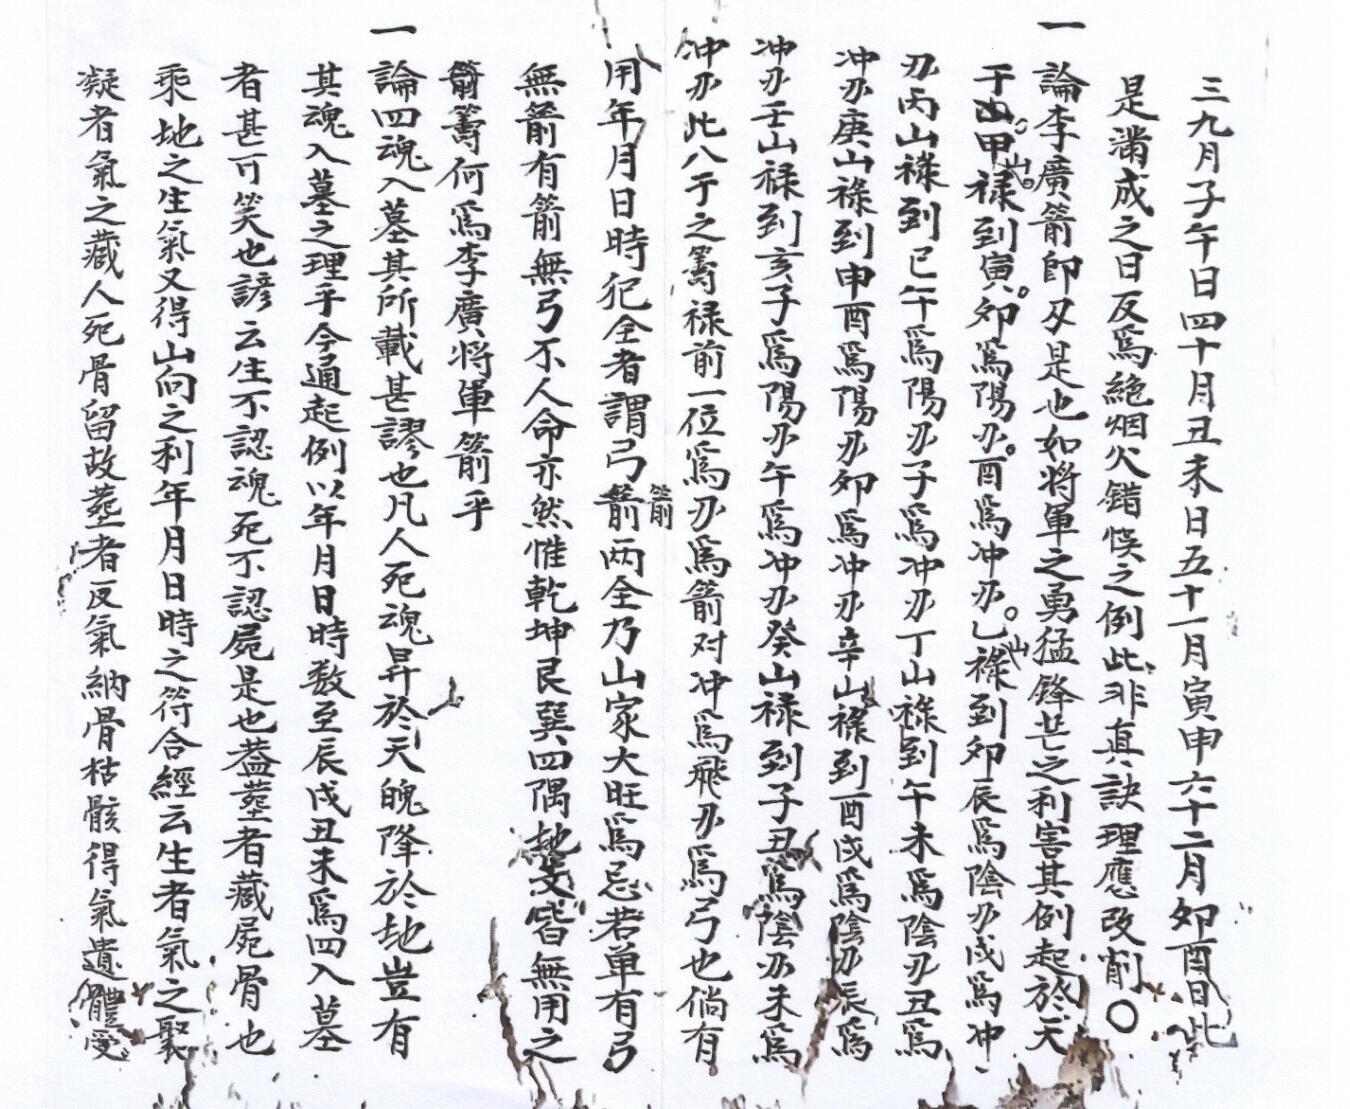 三九月子午日四十月丑未日五十一月寅申六十二月卯酉日此
是滿成之日反爲絶烟火錯悞之例此非真訣理應改削〇
一論李廣箭即刄是也如將軍之勇猛鋒芒之利害其例起於天
干山甲山禄到寅卯爲陽刅酉爲冲刅乙山禄到卯辰爲陰刅戌爲冲
刅丙山禄到巳午爲陽刅子爲冲刅丁山禄到午未爲陰刅丑爲
冲刅庚山禄到申酉爲陽刅卯爲冲刅辛山禄到酉戌爲陰刅辰爲
冲刅壬山禄到亥子爲陽刅午爲冲刅癸山禄到子丑爲陰刅未爲
冲刅此八干之籌禄前一位爲刅爲箭对冲爲飛刅爲弓也倘有
用年月日時犯全者謂弓箭箭两全乃山家大旺爲忌若单有弓
無箭有箭無弓不人命亦然惟乾坤艮巽四隅地支皆無用之
箭籌何爲李廣將軍箭乎
一論四魂入墓其所載甚謬也凡人死魂昇於天魄降於地豈有
其魂入墓之理乎今通起例以年月日時数至辰戌丑未爲四入墓
者甚可笑也諺云生不認魂死不認屍是也葢塟者藏屍骨也
乘地之生氣又得山向之利年月日時之符合經云生者氣之聚
凝者氣之藏人死骨留故塟者反氣納骨枯骸得氣遺體受